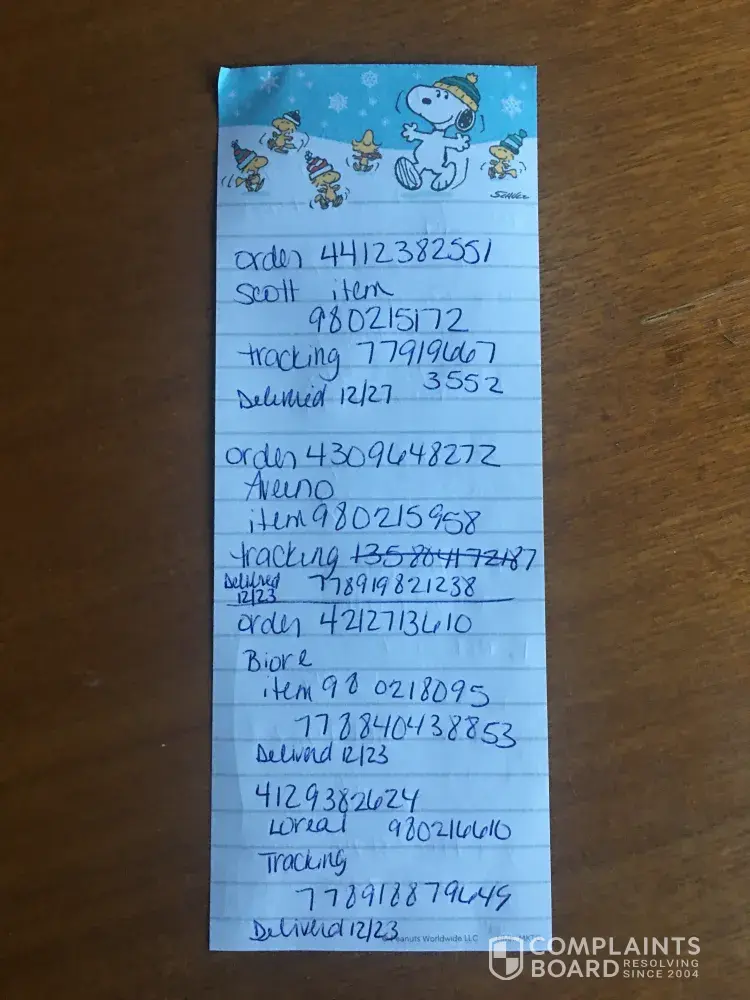 Schulz
order 4412382551
Scott item
980215172
tracking 77919667
3552
Delivered 12/27
order 4309648272
Aveeno
item 980215958
tracking 135884172187
Delivered 12/23
778919821238
order 4212713610
Biore
item 98 0218095
778840438853
Deliverd 12/23
4129382624
Loreal 980216610
Tracking
778918879649
Deliverd 12/23
Peanuts Worldwide LLC
COMPLAINTS
BOARD RESOLVING
SINCE 2004